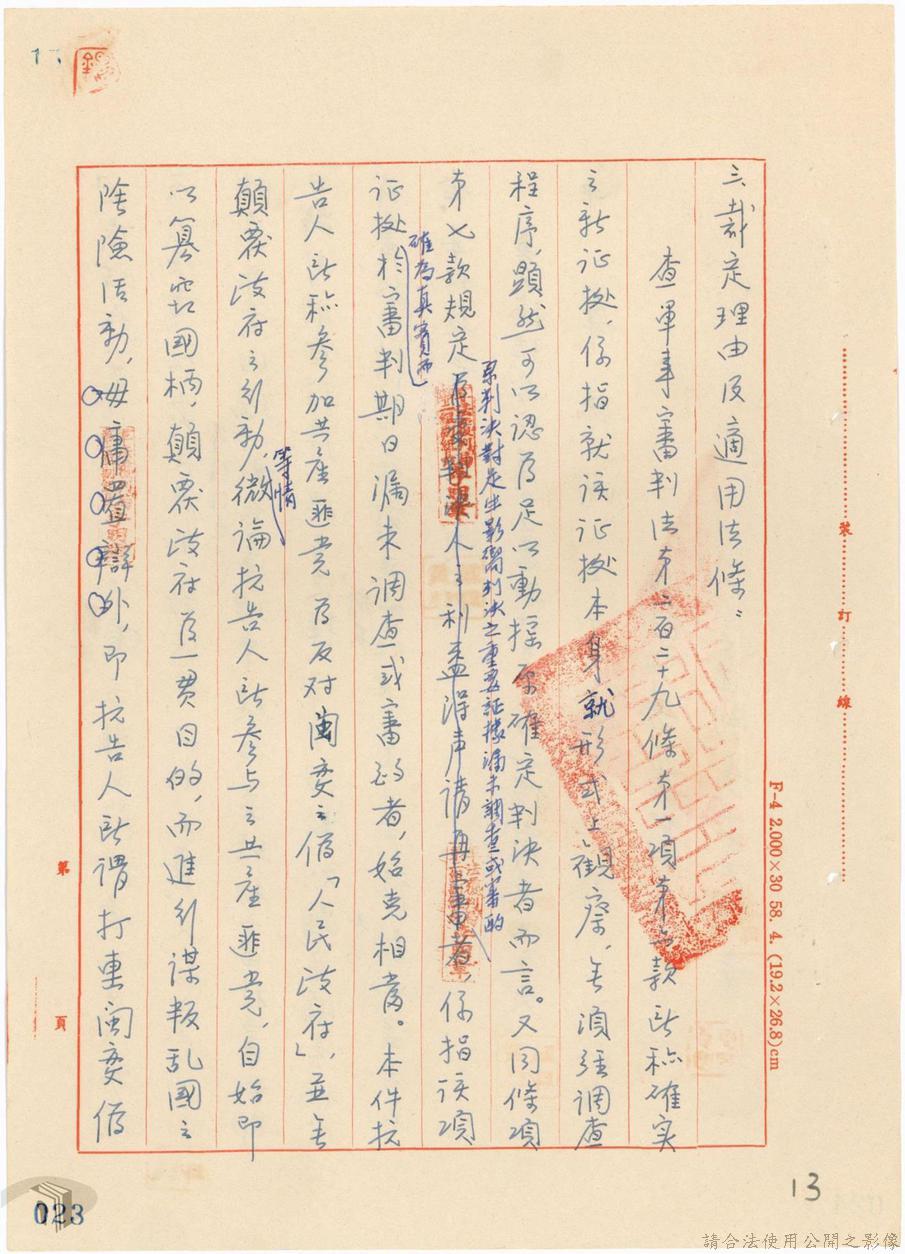 三、裁定理由及適用法條：
查軍事審判法第二百二十九條第一項第六款所称確实
之新证據，係指就该证據本身就形式上观察，無須經調查
程序，顕然可以認為足以動搖原確定判決者而言。又同條項
第七款規定為受判決人之利益得声請再審者，係指该項
原判決對足生影響判決之重要証據漏未調查或審酌
证據於審判期日漏未調查或審酌者，始克相當。本件抗
確為真實而
告人所称參加共產匪党為反对閩变之偽「人民政府」，並無
顛覆政府之行動，微論抗告人所參与之共產匪党，自始即
等情
以篡窃國柄，顛覆政府為一贯目的，而進行谋叛乱國之
陰險活動，毋庸置辯外，即抗告人所謂打垂閩变偽
裝
訂
線
F-4 2.000×30 58. 4. (19.2×26.8)cm
第
頁
13
023
請合法使用公開之影像